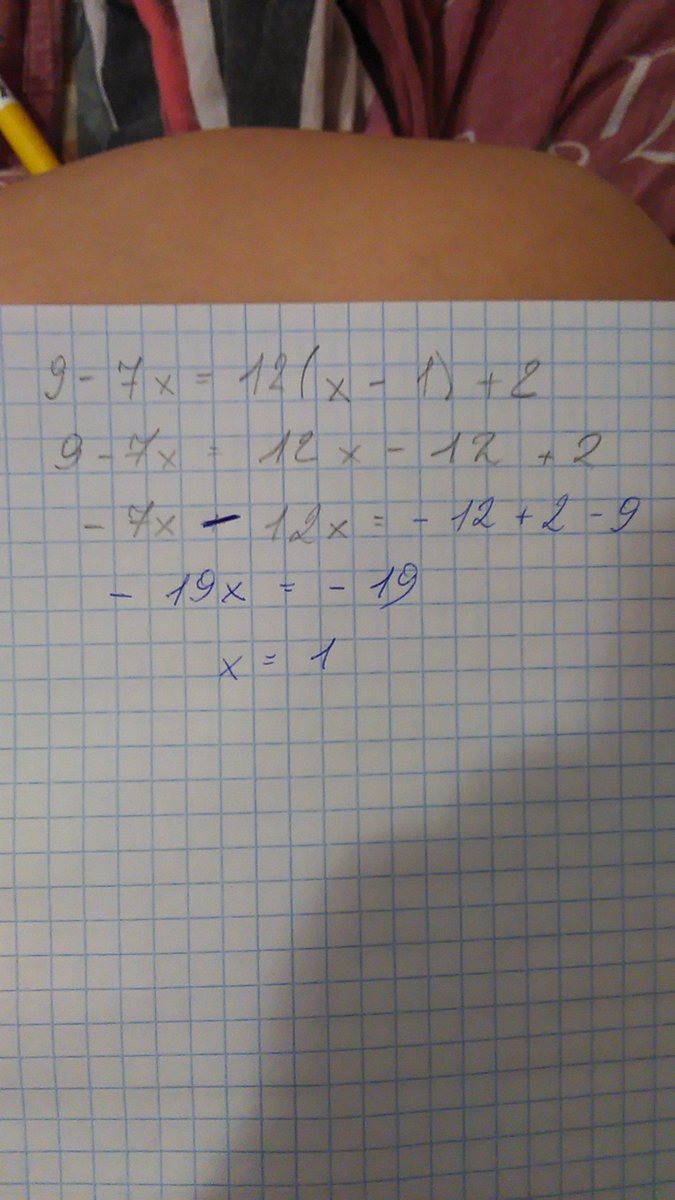 9 - 7x = 12(x - 1) + 2
9 - 7x = 12x - 12 + 2
- 7x - 12x = - 12 + 2 - 9
- 19x = - 19
x = 1